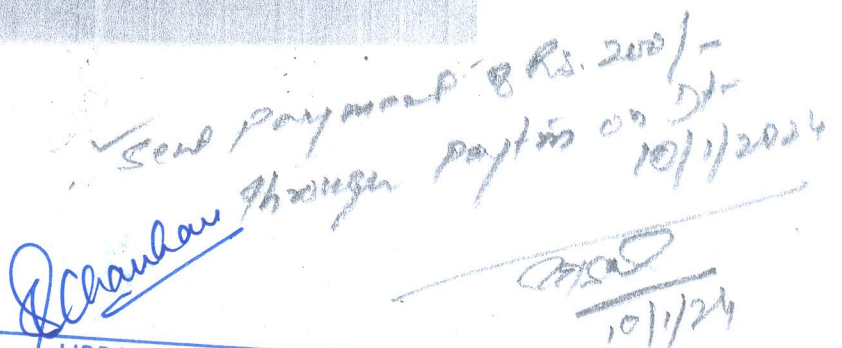 Send Payment of Rs. 200/-
through Paytm on Dt-
10/1/2024
Chauhan
10/1/24